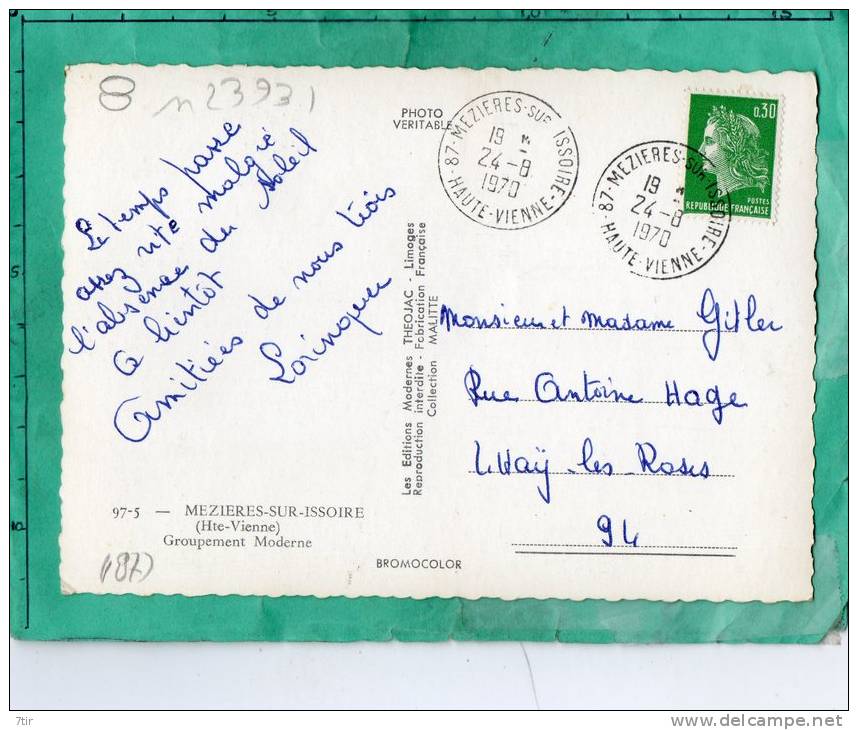 n 23931
PHOTO
VERITABLE
87-MEZIERES-SUR ISSOIRE-
19
24-8
1970
HAUTE-VIENNE
87-MEZIERES-SUR-ISSOIRE-
19
24-8
1970
HAUTE-VIENNE
0,30
POSTES
REPUBLIQUE FRANÇAISE
Le temps passe
assez vite malgré
l'absence du soleil
A bientôt
Amitiées de nous trois
Les Editions Modernes THEOJAC - Limoges
Reproduction interdite - Fabrication Française
Collection MALITTE
Monsieur et Madame
Rue Antoine Hage
L'Haÿ-les-Roses
94
97-5 — MEZIERES-SUR-ISSOIRE
(Hte-Vienne)
Groupement Moderne
(87)
BROMOCOLOR
7tir
www.delcampe.net